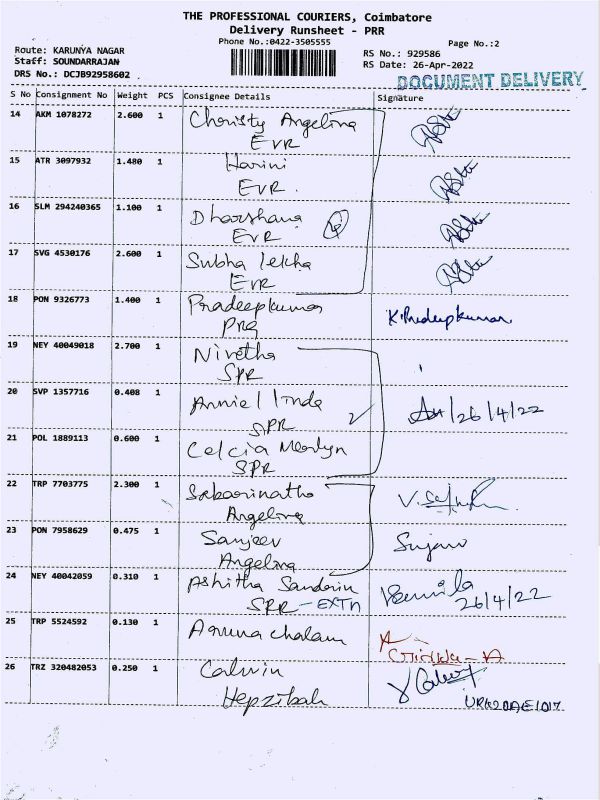 THE PROFESSIONAL COURIERS, Coimbatore
Delivery Runsheet - PRR
Phone No.:0422-3505555
Page No.:2
Route: KARUNYA NAGAR
Staff: SOUNDARRAJAN
DRS No.: DCJB92958602
RS No.: 929586
RS Date: 26-Apr-2022
DOCUMENT DELIVERY
S No Consignment No Weight PCS Consignee Details Signature
14 AKM 1078272 2.600 1 Christy Angelina
EVR
15 ATR 3097932 1.480 1 Harini
EVR.
16 SLM 294240365 1.100 1 Dharshana
EVR
17 SVG 4530176 2.600 1 Subha lekha
EVR
18 PON 9326773 1.400 1 Pradeepkumar K.Pradeepkumar
PRG
19 NEY 40049018 2.700 1 Nivetha
SPR
20 SVP 1357716 0.408 1 Anniel linda /26/4/22
SPR
21 POL 1889113 0.600 1 Celcia Merlyn
SPR
22 TRP 7703775 2.300 1 Sabarinatha
Angelina
23 PON 7958629 0.475 1 Sanjeev
Angelina
24 NEY 40042059 0.310 1 Ashitha Sanderin
SPR - EXTN 26/4/22
25 TRP 5524592 0.130 1 Aruna chalam
26 TRZ 320482053 0.250 1 Calwin
Hepzibah URK20AE1017